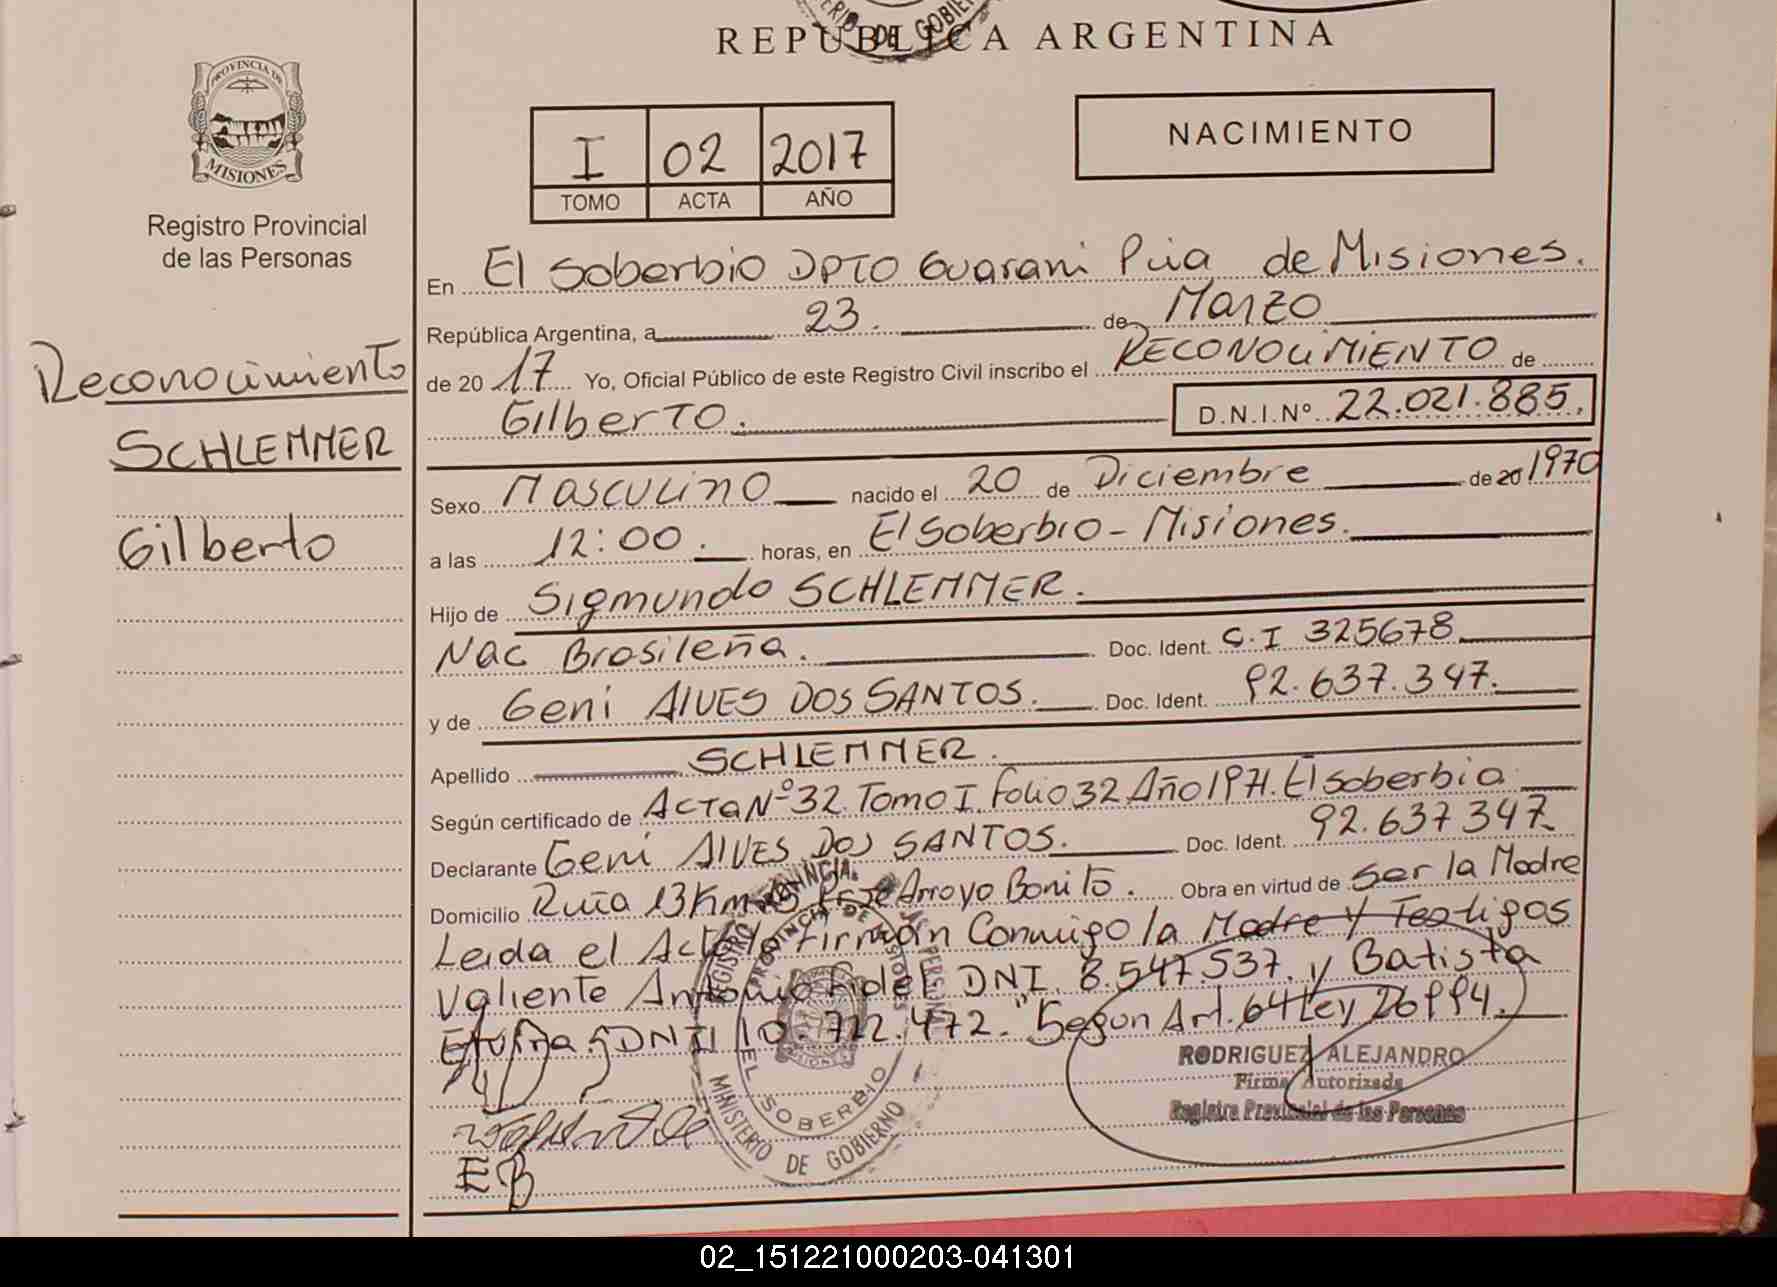 MINISTERIO DE GOBIERNO
REPÚBLICA ARGENTINA
PROVINCIA DE
MISIONES
Registro Provincial
de las Personas
I 02 2017
TOMO ACTA AÑO
NACIMIENTO
Reconocimiento
SCHLEMMER
Gilberto
En El Soberbio DPTO Guarani Pcia de Misiones.
República Argentina, a 23. de Marzo
de 20 17 Yo, Oficial Público de este Registro Civil inscribo el RECONOCIMIENTO de
Gilberto. D.N.I.Nº 22.021.885.
Sexo Masculino nacido el 20 de Diciembre de 20 1970
a las 12:00. horas, en El Soberbio - Misiones.
Hijo de Sigmundo SCHLEMMER.
Nac Brasileña. Doc. Ident. C.I 325678
y de Geni Alves DOS SANTOS. Doc. Ident. 92.637.347.
Apellido SCHLEMMER.
Según certificado de Acta Nº 32. Tomo I. Folio 32 Año 1971. El Soberbio
Declarante Geni Alves Dos SANTOS. Doc. Ident. 92.637 347.
Domicilio Ruta 13 Km Arroyo Bonito. Obra en virtud de Ser la Madre
Leida el Acta la Firman Conmigo la Madre y Testigos
Valiente Antonio Fidel. DNI. 8.547.537. y Batista
DNI 10.722.472. "Segun Art. 64 Ley 26994.
REGISTRO PROVINCIAL DE LAS PERSONAS
PROVINCIA DE MISIONES
EL SOBERBIO
MINISTERIO DE GOBIERNO
RODRIGUEZ ALEJANDRO
Firma Autorizada
Registro Provincial de las Personas
EB
02_151221000203-041301